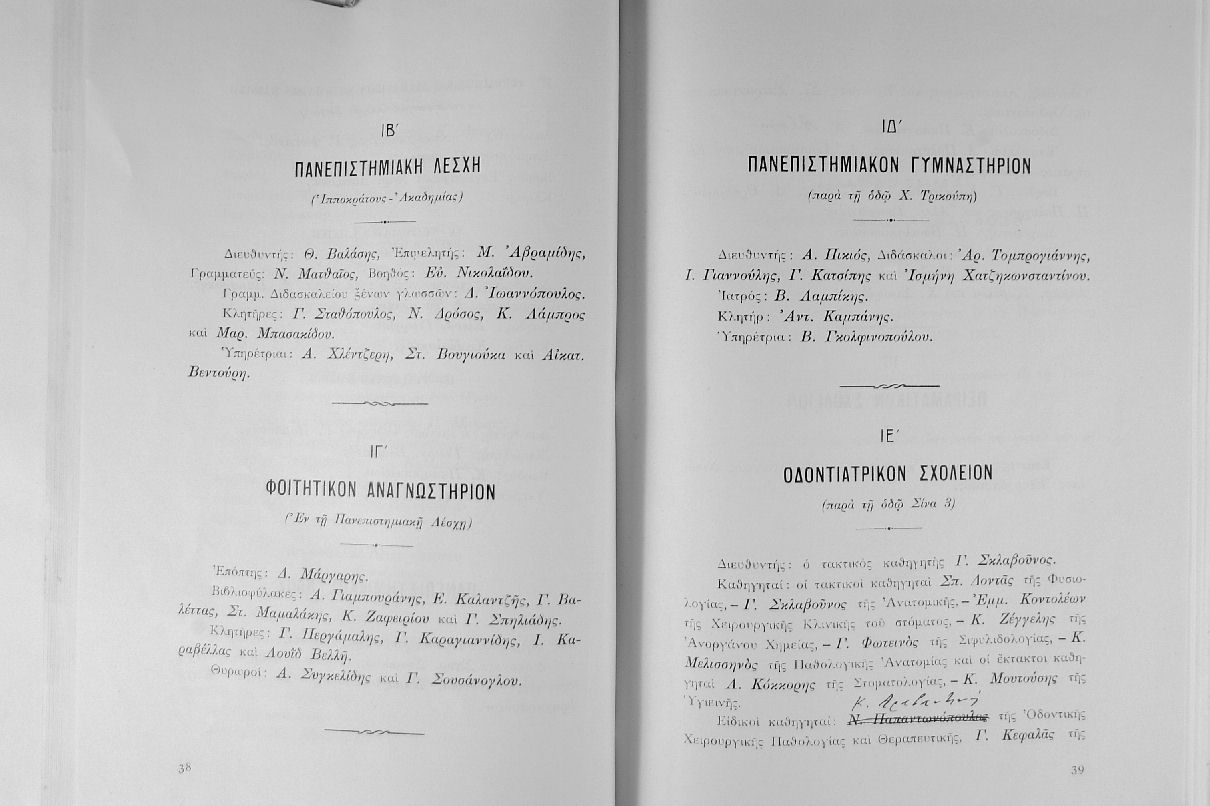 ΙΒ΄
ΠΑΝΕΠΙΣΤΗΜΙΑΚΗ ΛΕΣΧΗ
(Ἱπποκράτους - Ἀκαδημίας)
Διευθυντής: Θ. Βαλάσης, Ἐπιμελητής: Μ. Ἀβραμίδης,
Γραμματεύς: Ν. Ματθαῖος, Βοηθός: Εὐ. Νικολαΐδου.
Γραμμ. Διδασκαλείου ξένων γλωσσῶν: Δ. Ἰωαννόπουλος.
Κλητῆρες: Γ. Σταθόπουλος, Ν. Δρόσος, Κ. Λάμπρος
καὶ Μαρ. Μπασακίδου.
Ὑπηρέτριαι: Α. Χλέντζερη, Στ. Βουγιούκα καὶ Αἰκατ.
Βεντούρη.
ΙΓ΄
ΦΟΙΤΗΤΙΚΟΝ ΑΝΑΓΝΩΣΤΗΡΙΟΝ
(Ἐν τῇ Πανεπιστημιακῇ Λέσχῃ)
Ἐπόπτης: Δ. Μάργαρης.
Βιβλιοφύλακες: Α. Γιαμπουράνης, Ε. Καλαντζῆς, Γ. Βα-
λέττας, Στ. Μαμαλάκης, Κ. Ζαφειρίου καὶ Γ. Σπηλιάδης.
Κλητῆρες: Γ. Περγάμαλης, Γ. Καραγιαννίδης, Ι. Κα-
ραβέλλας καὶ Δουΐδ Βελλῆ.
Θυρωροί: Α. Συγκελίδης καὶ Γ. Σουσάνογλου.
38
ΙΔ΄
ΠΑΝΕΠΙΣΤΗΜΙΑΚΟΝ ΓΥΜΝΑΣΤΗΡΙΟΝ
(παρὰ τῇ ὁδῷ Χ. Τρικούπη)
Διευθυντής: Α. Πικιός, Διδάσκαλοι: Ἀρ. Τομπρογιάννης,
Ι. Γιαννούλης, Γ. Κατσίπης καὶ Ἰσμήνη Χατζηκωνσταντίνου.
Ἰατρός: Β. Λαμπίκης.
Κλητήρ: Ἀντ. Καμπάνης.
Ὑπηρέτρια: Β. Γκολφινοπούλου.
ΙΕ΄
ΟΔΟΝΤΙΑΤΡΙΚΟΝ ΣΧΟΛΕΙΟΝ
(παρὰ τῇ ὁδῷ Σίνα 3)
Διευθυντής: ὁ τακτικός καθηγητής Γ. Σκλαβοῦνος.
Καθηγηταί: οἱ τακτικοὶ καθηγηταὶ Σπ. Δοντᾶς τῆς Φυσιο-
λογίας, – Γ. Σκλαβοῦνος τῆς Ἀνατομικῆς, – Ἐμμ. Κοντολέων
τῆς Χειρουργικῆς Κλινικῆς τοῦ στόματος, – Κ. Ζέγγελης τῆς
Ἀνοργάνου Χημείας, – Γ. Φωτεινὸς τῆς Σιφυλιδολογίας, – Κ.
Μελισσηνὸς τῆς Παθολογικῆς Ἀνατομίας καὶ οἱ ἔκτακτοι καθη-
γηταὶ Α. Κόκκορης τῆς Στοματολογίας, – Κ. Μουτούσης τῆς
Ὑγιεινῆς.
Εἰδικοὶ καθηγηταί: Ν. Παπαντωνόπουλος τῆς Ὀδοντικῆς
Χειρουργικῆς Παθολογίας καὶ Θεραπευτικῆς, Γ. Κεφαλᾶς τῆς
39